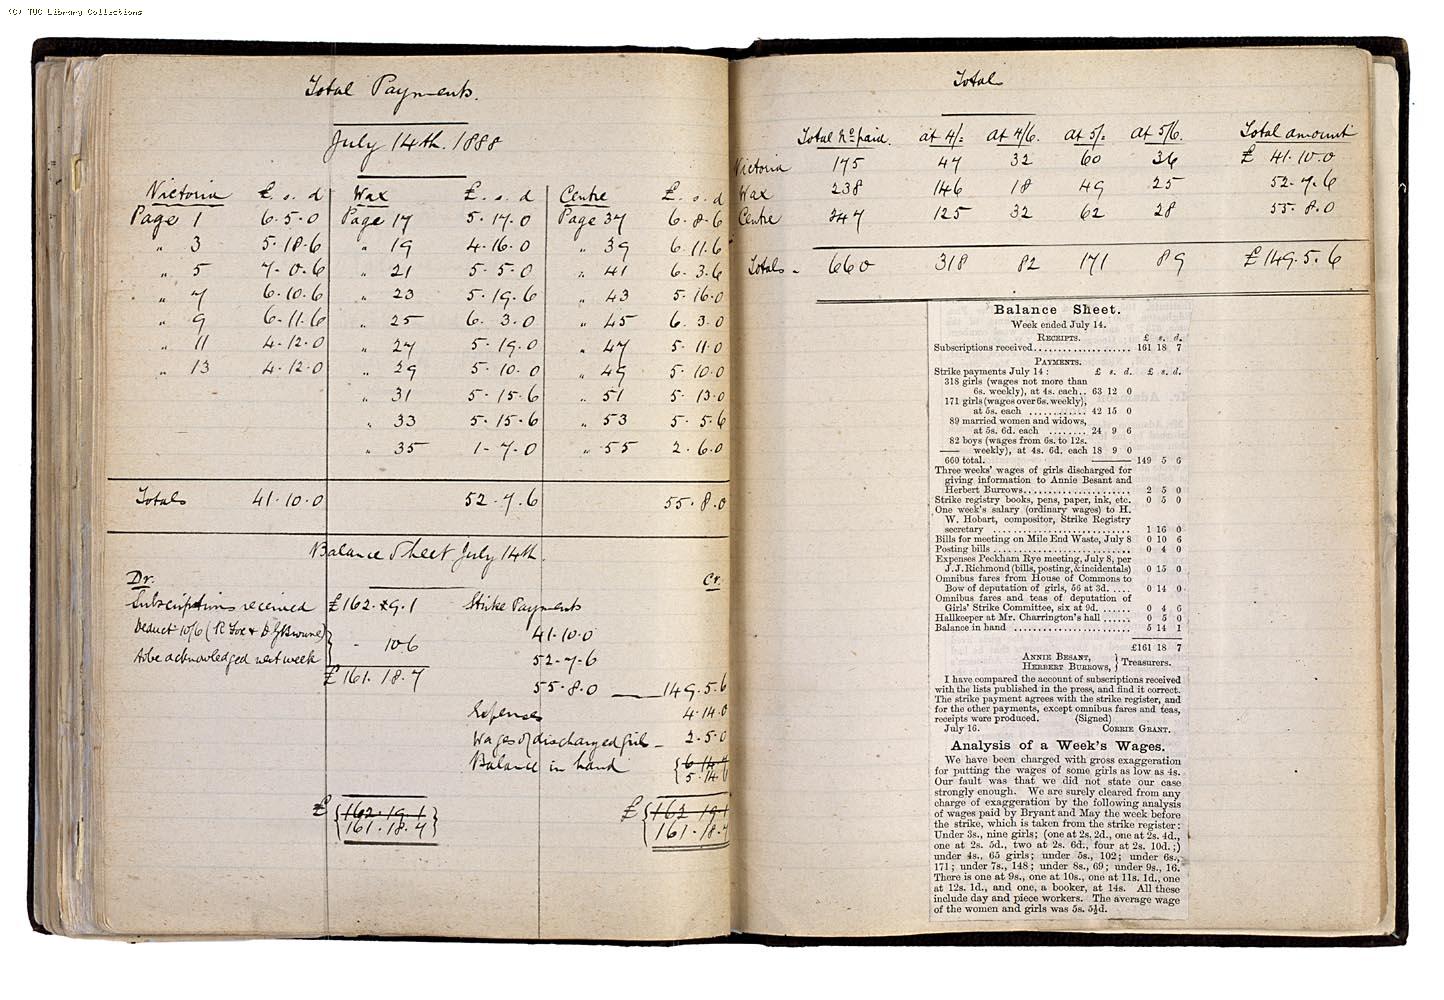 (C) TUC Library Collections
Total Payments.
July 14th. 1888
Victoria £. s. d Wax £. s. d Centre £. s. d
Page 1 6-5-0 Page 17 5-17-0 Page 37 6-8-6
" 3 5-18-6 " 19 4-16-0 " 39 6-11-6
" 5 7-0-6 " 21 5-5-0 " 41 6-3-6
" 7 6-10-6 " 23 5-19-6 " 43 5-16-0
" 9 6-11-6 " 25 6-3-0 " 45 6-3-0
" 11 4-12-0 " 27 5-19-0 " 47 5-11-0
" 13 4-12-0 " 29 5-10-0 " 49 5-10-0
" 31 5-15-6 " 51 5-13-0
" 33 5-15-6 " 53 5-5-6
" 35 1-7-0 " 55 2-6-0
Totals 41-10-0 52-7-6 55-8-0
Balance Sheet July 14th.
Dr. Cr.
Subscriptions received £162.9.1 Strike Payments
Deduct 10/6 (R Fox & D G Browne) 41-10-0
to be acknowledged next week - 10 6 52-7-6
£161.18.7 55-8-0 149.5.6
Expenses 4.14.0
Wages of discharged girls - 2-5-0
Balance in hand 5.14
£ 162.19.1 £ 162 19 1
161.18.7 161.18.7
Total
Total No paid. at 4/= at 4/6. at 5/= at 5/6. Total amount
Victoria 175 47 32 60 36 £ 41.10.0
Wax 238 146 18 49 25 52-7-6
Centre 247 125 32 62 28 55.8.0
Totals - 660 318 82 171 89 £149.5.6
Balance Sheet.
Week ended July 14.
RECEIPTS. £ s. d.
Subscriptions received.................... 161 18 7
PAYMENTS.
Strike payments July 14 : £ s. d. £ s. d.
318 girls (wages not more than
6s. weekly), at 4s. each.. 63 12 0
171 girls (wages over 6s. weekly),
at 5s. each ............ 42 15 0
89 married women and widows,
at 5s. 6d. each ........ 24 9 6
82 boys (wages from 6s. to 12s.
weekly), at 4s. 6d. each 18 9 0
660 total. 149 5 6
Three weeks' wages of girls discharged for
giving information to Annie Besant and
Herbert Burrows...................... 2 5 0
Strike registry books, pens, paper, ink, etc. 0 5 0
One week's salary (ordinary wages) to H.
W. Hobart, compositor, Strike Registry
secretary ........................... 1 16 0
Bills for meeting on Mile End Waste, July 8 0 10 6
Posting bills ............................ 0 4 0
Expenses Peckham Rye meeting, July 8, per
J. J. Richmond (bills, posting, & incidentals) 0 15 0
Omnibus fares from House of Commons to
Bow of deputation of girls, 56 at 3d..... 0 14 0
Omnibus fares and teas of deputation of
Girls' Strike Committee, six at 9d. ...... 0 4 6
Hallkeeper at Mr. Charrington's hall ...... 0 5 0
Balance in hand ........................ 5 14 1
£161 18 7
ANNIE BESANT,
HERBERT BURROWS, } Treasurers.
I have compared the account of subscriptions received
with the lists published in the press, and find it correct.
The strike payment agrees with the strike register, and
for the other payments, except omnibus fares and teas,
receipts were produced. (Signed)
July 16. CORRIE GRANT.
Analysis of a Week's Wages.
We have been charged with gross exaggeration
for putting the wages of some girls as low as 4s.
Our fault was that we did not state our case
strongly enough. We are surely cleared from any
charge of exaggeration by the following analysis
of wages paid by Bryant and May the week before
the strike, which is taken from the strike register :
Under 3s., nine girls; (one at 2s. 2d., one at 2s. 4d.,
one at 2s. 5d., two at 2s. 6d., four at 2s. 10d.;)
under 4s., 65 girls; under 5s., 102; under 6s.,
171; under 7s., 148; under 8s., 69; under 9s., 16.
There is one at 9s., one at 10s., one at 11s. 1d., one
at 12s. 1d., and one, a booker, at 14s. All these
include day and piece workers. The average wage
of the women and girls was 5s. 5½d.